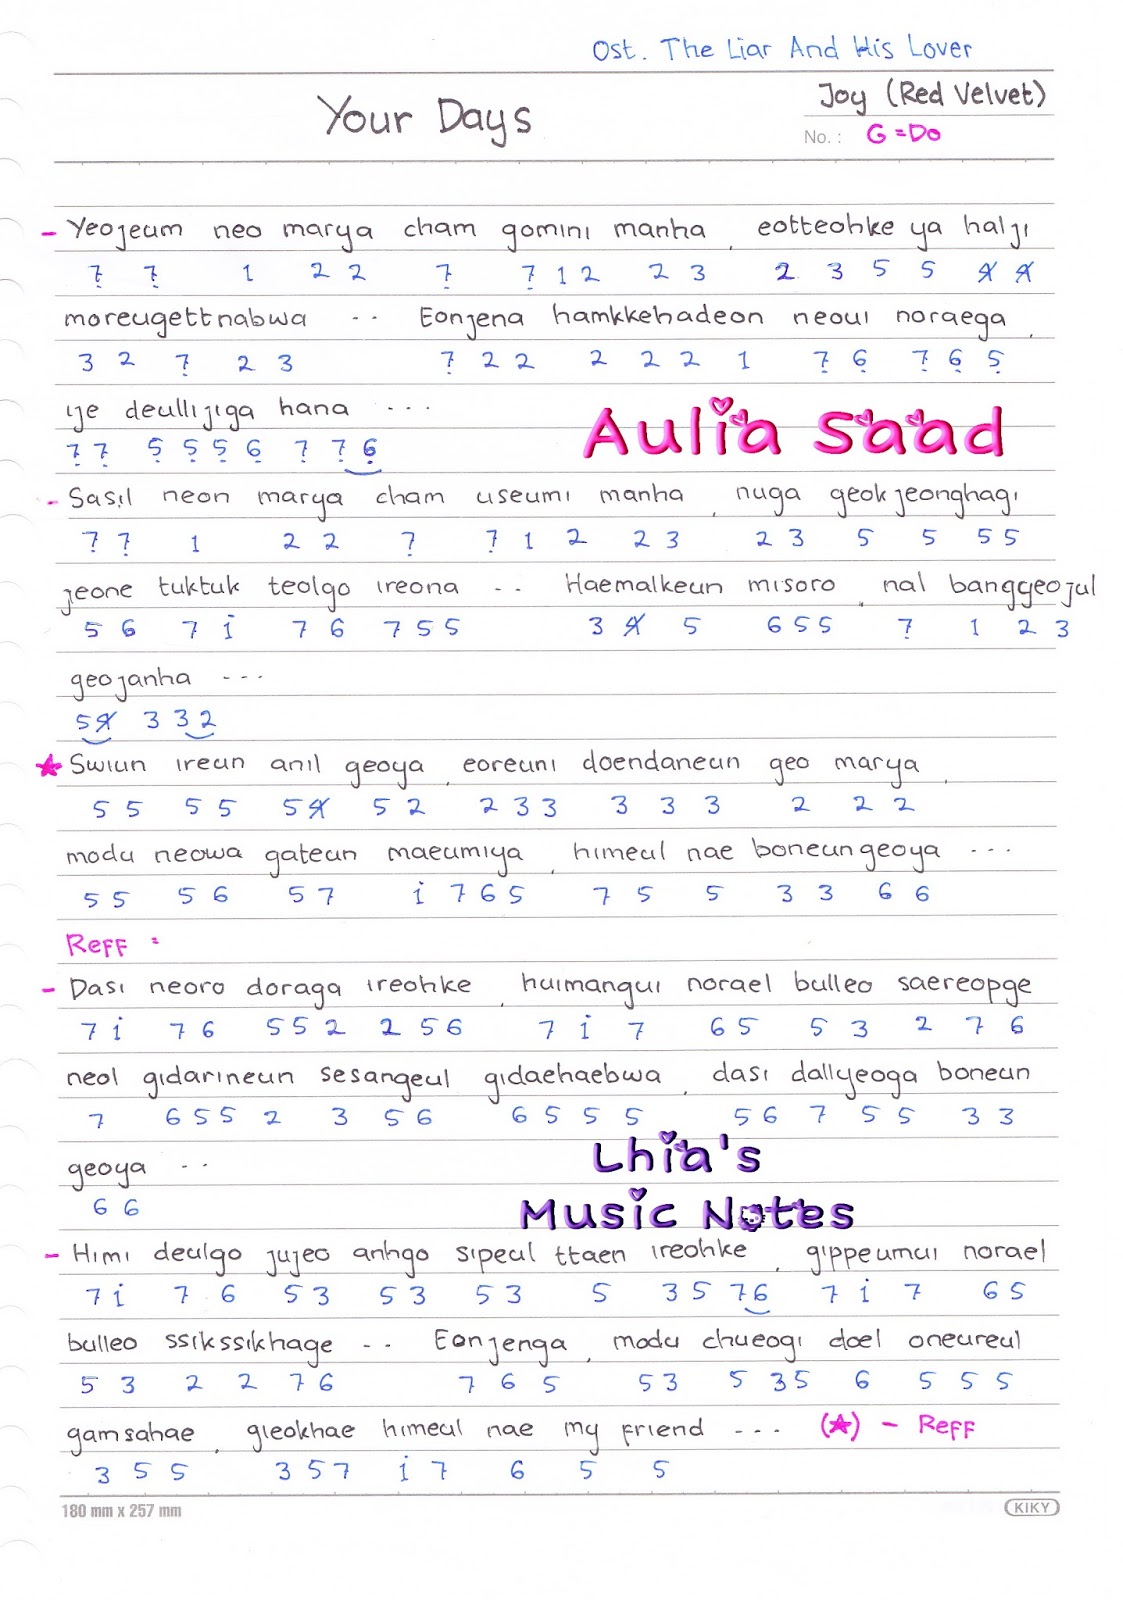 Ost. The Liar And His Lover
Your Days
Joy (Red Velvet)
No. : G = Do
- Yeojeum neo marya cham gomini manha, eotteohke ya halji
7̣ 7̣ 1 2 2 7̣ 7̣ 1 2 2 3 2 3 5 5 4̸ 4̸
moreugettnabwa -- Eonjena hamkkehadeon neoui noraega,
3 2 7̣ 2 3 7̣ 2 2 2 2 2 1 7̣ 6̣ 7̣ 6̣ 5̣
ije deullijiga hana ---
7̣ 7̣ 5̣ 5̣ 5̣ 6̣ 7̣ 7̣ 6̣
Aulia Saad
- Sasil neon marya cham useumi manha, nuga geokjeonghagi
7̣ 7̣ 1 2 2 7̣ 7̣ 1 2 2 3 2 3 5 5 5 5
jeone tuktuk teolgo ireona -- Haemalkeun misoro, nal banggeojul
5 6 7 1̇ 7 6 7 5 5 3 4̸ 5 6 5 5 7̣ 1 2 3
geojanha ---
5 4̸ 3 3 2
★ Swiun ireun anil geoya, eoreuni doendaneun geo marya,
5 5 5 5 5 4̸ 5 2 2 3 3 3 3 3 2 2 2
modu neowa gateun maeumiya, himeul nae boneungeoya ---
5 5 5 6 5 7 1̇ 7 6 5 7 5 5 3 3 6 6
Reff :
- Dasi neoro doraga ireohke, huimangui norael bulleo saereopge
7 1̇ 7 6 5 5 2 2 5 6 7 1̇ 7 6 5 5 3 2 7 6
neol gidarineun sesangeul gidaehaebwa, dasi dallyeoga boneun
7 6 5 5 2 3 5 6 6 5 5 5 5 6 7 5 5 3 3
geoya --
6 6
Lhia's
Music Notes
- Himi deulgo jujeo anhgo sipeul ttaen ireohke, gippeumui norael
7 1̇ 7 6 5 3 5 3 5 3 5 3 5 7 6 7 1̇ 7 6 5
bulleo ssikssikhage -- Eonjenga, modu chueogi doel oneureul
5 3 2 2 7 6 7 6 5 5 3 5 3 5 6 5 5 5
gamsahae, gieokhae himeul nae my friend --- (★) - Reff
3 5 5 3 5 7 1̇ 7 6 5 5
180 mm x 257 mm
KIKY